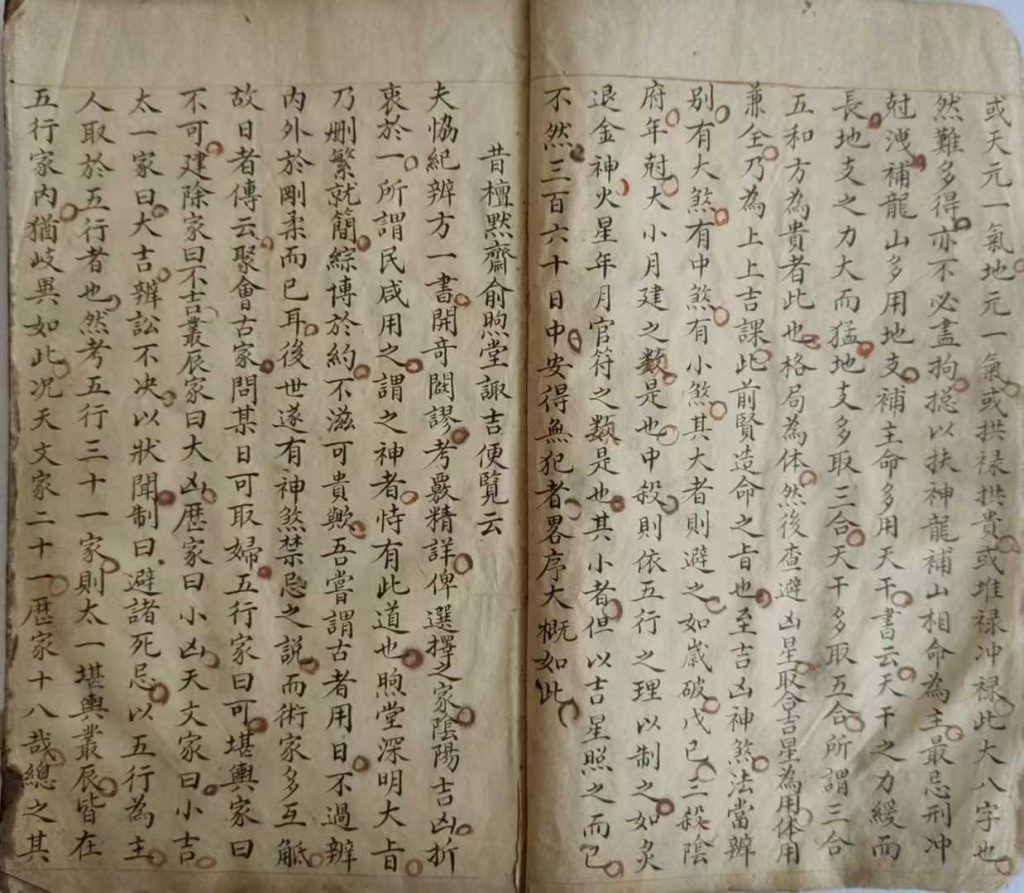 或天元一氣地元一氣或拱禄拱貴或堆禄冲禄此大八字也
然難多得亦不必盡拘揔以扶神龍補山相命為主最忌刑冲
尅洩補龍山多用地支補主命多用天干書云天干之力緩而
長地支之力大而猛地支多取三合天干多取五合所謂三合
五和方為貴者此也格局為体然後查避凶星取合吉星為用体用
兼全乃為上上吉課此前賢造命之旨也至吉凶神煞法當辨
别有大煞有中煞有小煞其大者則避之如歲破戊己三殺陰
府年尅大小月建之数是也中殺則依五行之理以制之如炙
退金神火星年月官符之数是也其小者但以吉星照之而已
不然三百六十日中安得無犯者畧序大概如此
昔檀默齋俞煦堂諏吉便覽云
夫恊紀辨方一書開奇闢謬考覈精詳俾選擇之家陰陽吉凶折
衷於一所謂民咸用之謂之神者恃有此道也煦堂深明大旨
乃删繁就簡綜博於約不滋可貴歟吾嘗謂古者用日不過辨
内外於剛柔而已耳後世遂有神煞禁忌之説而術家多互觝
故日者傳云聚會古家問某日可取婦五行家曰可堪輿家曰
不可建除家曰不吉叢辰家曰大凶歷家曰小凶天文家曰小吉
太一家曰大吉辨訟不决以狀聞制曰避諸死忌以五行為主
人取於五行者也然考五行三十一家則太一堪輿叢辰皆在
五行家内猶岐異如此况天文家二十一歷家十八哉總之其